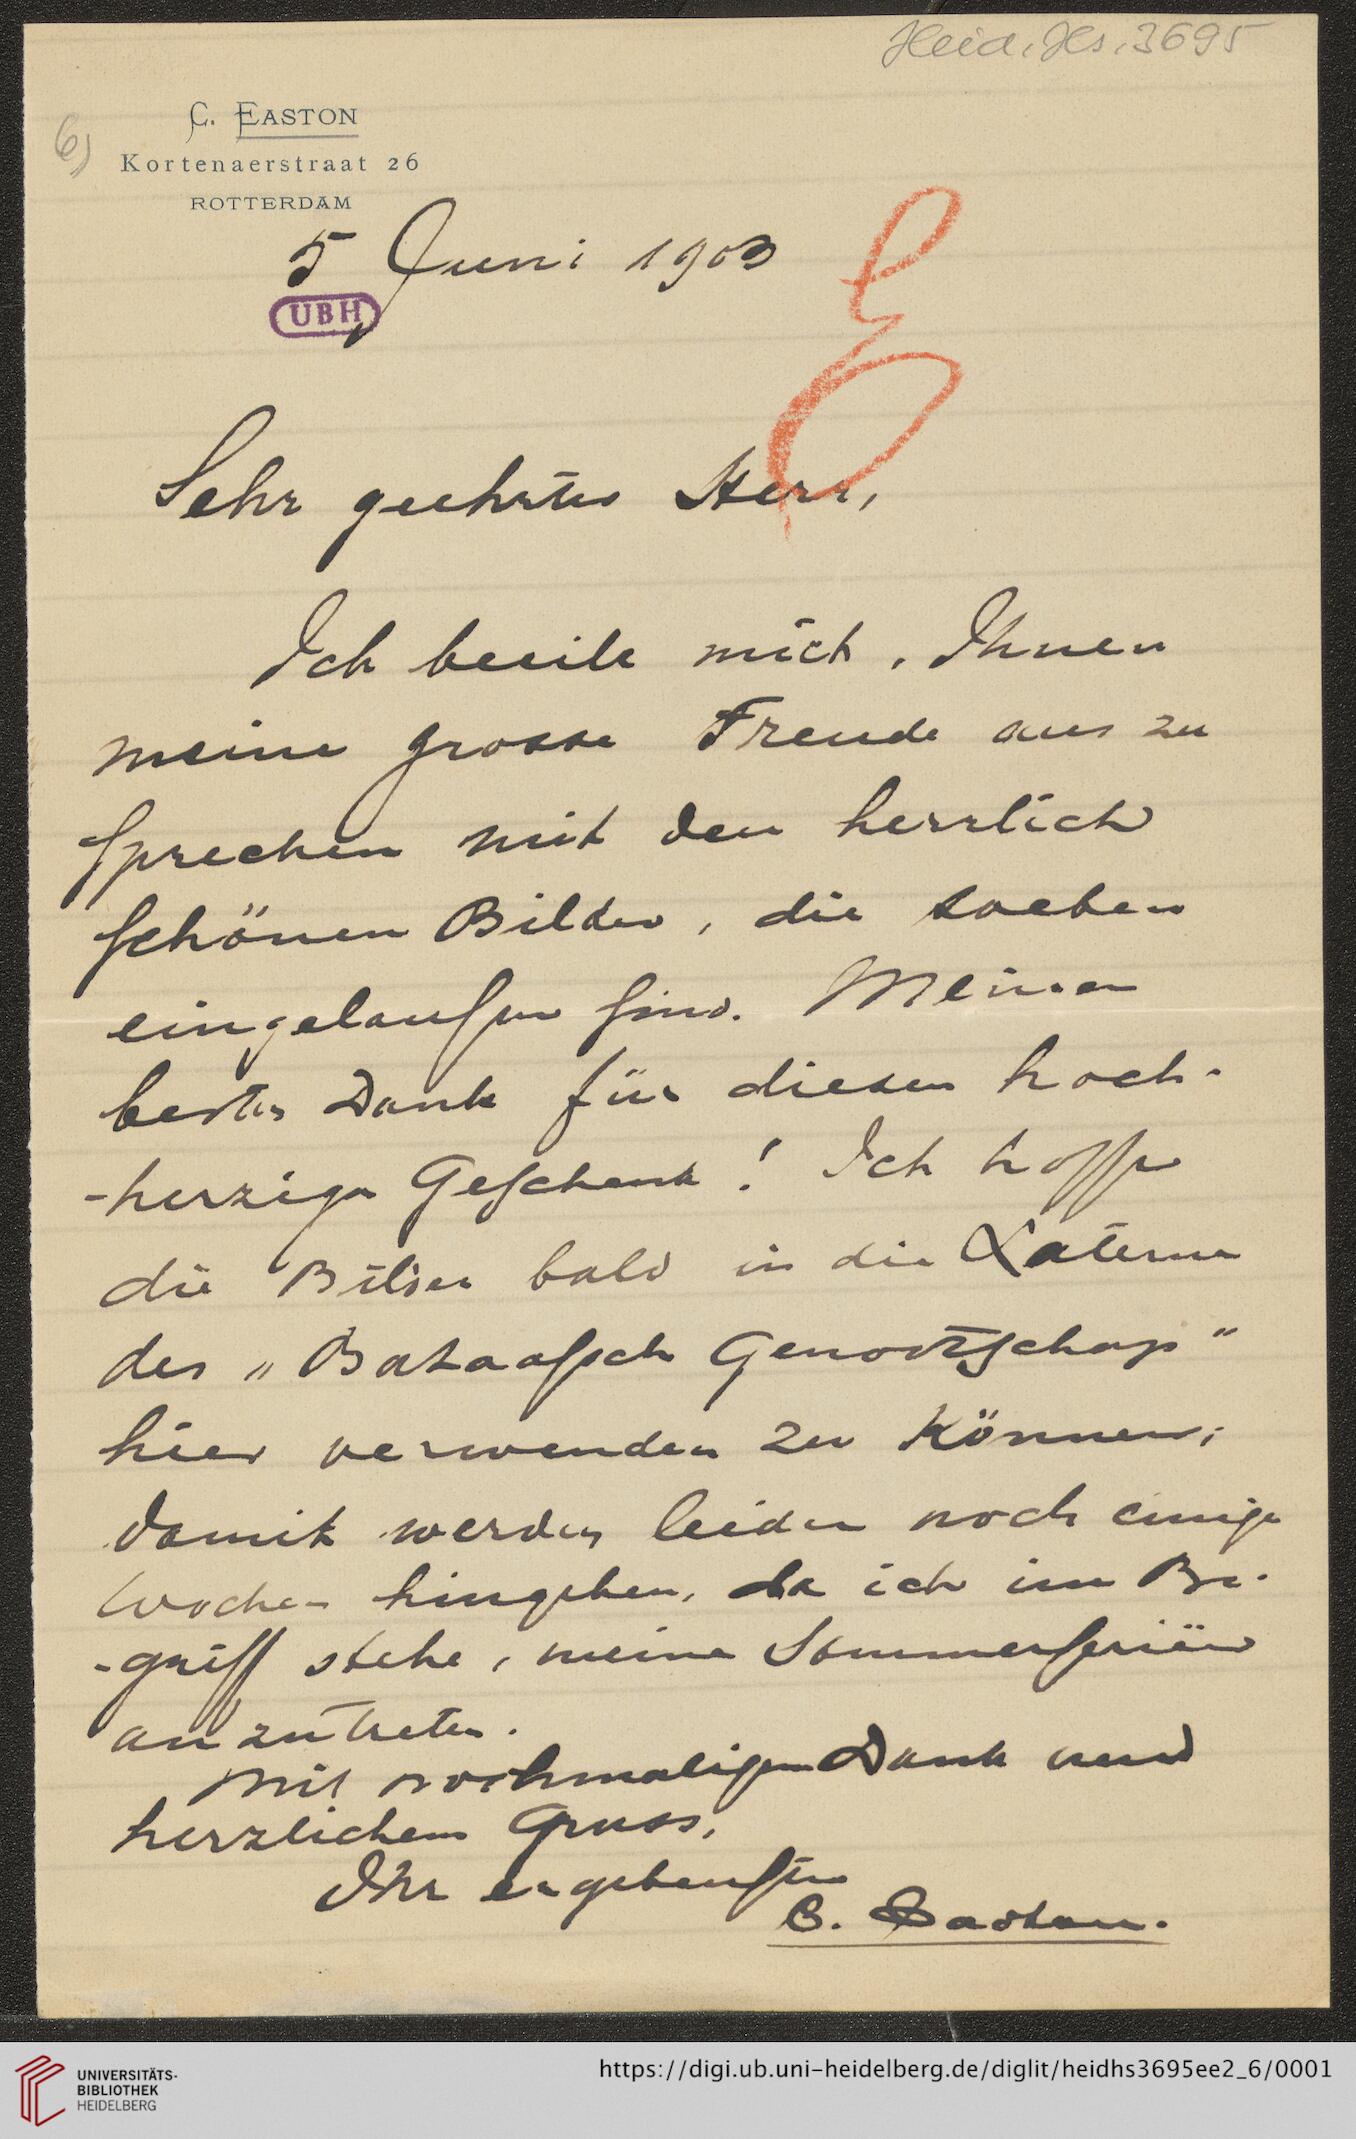 Heid. Hs. 3695
6)
C. EASTON
Kortenaerstraat 26
ROTTERDAM
5 Juni 1903
UBH
E
Sehr geehrter Herr,
Ich beeile mich, Ihnen
meine grosse Freude aus zu
sprechen mit den herrlich
schönen Bilder, die soeben
eingelaufen sind. Meinen
besten Dank für diesen hoch-
-herzigen Geschenk! Ich hoffe
die Bilder bald in die Laterne
der „Bataafsch Genootschap"
hier verwenden zu können;
damit werden leider noch einige
Wochen hingehen, da ich im Be-
-griff stehe, meine Sommerferiën
an zu treten.
Mit nochmaligem Dank und
herzlichem Gruss,
Ihr ergebenster
C. Easton.
UNIVERSITÄTS-
BIBLIOTHEK
HEIDELBERG
https://digi.ub.uni-heidelberg.de/diglit/heidhs3695ee2_6/0001